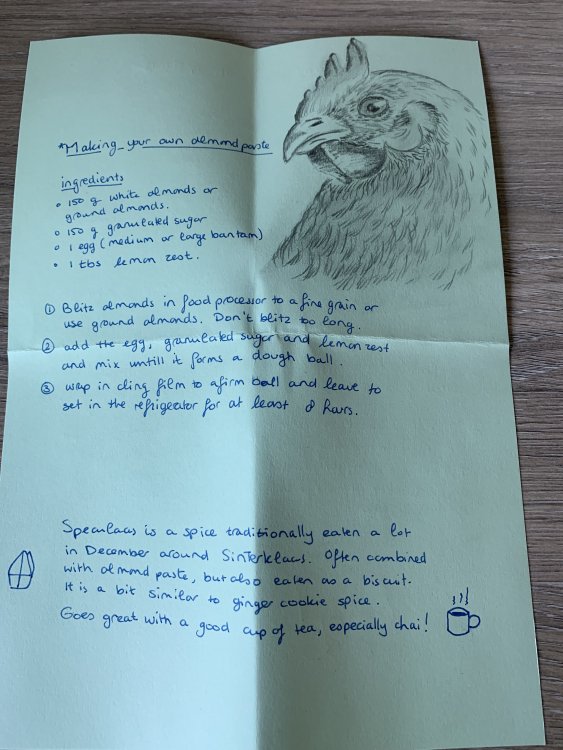 *Making your own almond paste
ingredients
• 150 g white almonds or
ground almonds.
• 150 g granulated sugar
• 1 egg (medium or large bantam)
• 1 tbs lemon zest.
① Blitz almonds in food processor to a fine grain or
use ground almonds. Don't blitz too long.
② add the egg, granulated sugar and lemon zest
and mix untill it forms a dough ball.
③ wrap in cling film to a firm ball and leave to
set in the refrigerator for at least 8 hours.
Speculaas is a spice traditionally eaten a lot
in December around Sinterklaas. Often combined
with almond paste, but also eaten as a biscuit.
It is a bit similar to ginger cookie spice.
Goes great with a good cup of tea, especially chai!